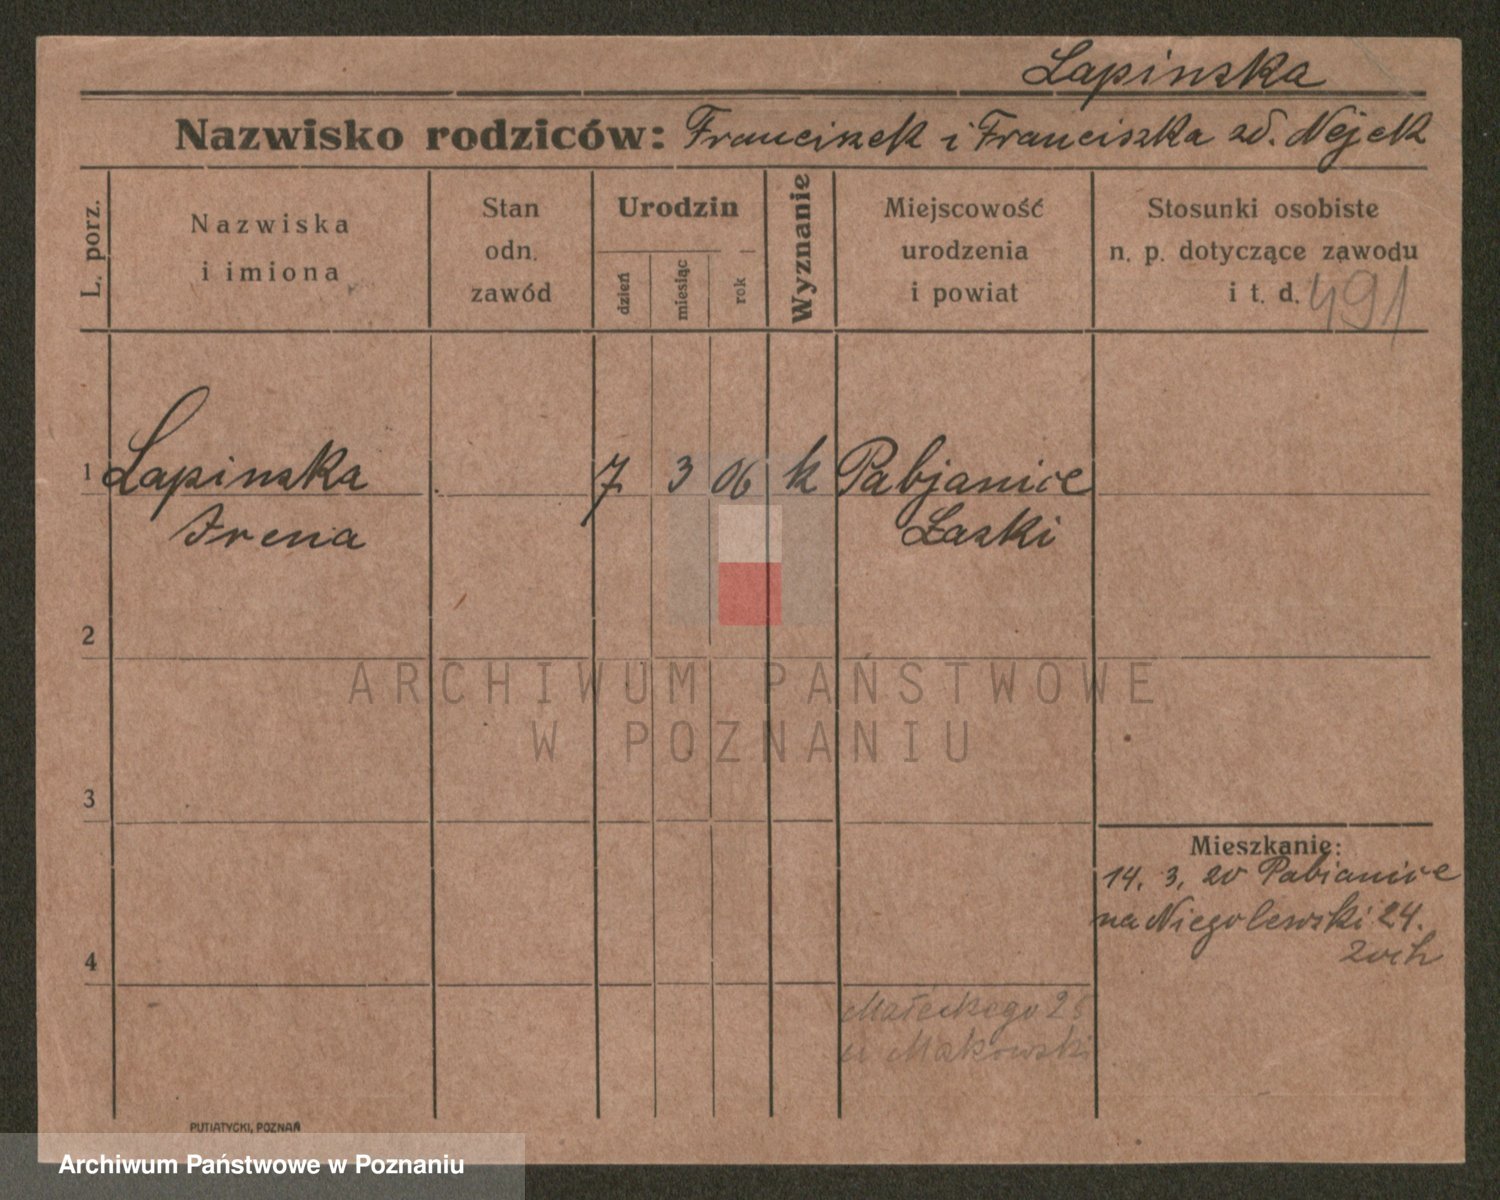 Lapinska
Nazwisko rodziców: Franciszek i Franciszka zd. Nejek
L. porz.
Nazwiska
i imiona
Stan
odn.
zawód
Urodzin
dzień
miesiąc
rok
Wyznanie
Miejscowość
urodzenia
i powiat
Stosunki osobiste
n. p. dotyczące zawodu
i t. d. 491
1 Lapinska 7 3 06 k Pabjanice
Irena Łaski
2
ARCHIWUM PAŃSTWOWE
W POZNANIU
3
Mieszkanie:
14. 3. 20 Pabianice
na Niegolewski 24.
4
Małeckego 25
u Makowski
PUTIATYCKI, POZNAŃ
Archiwum Państwowe w Poznaniu